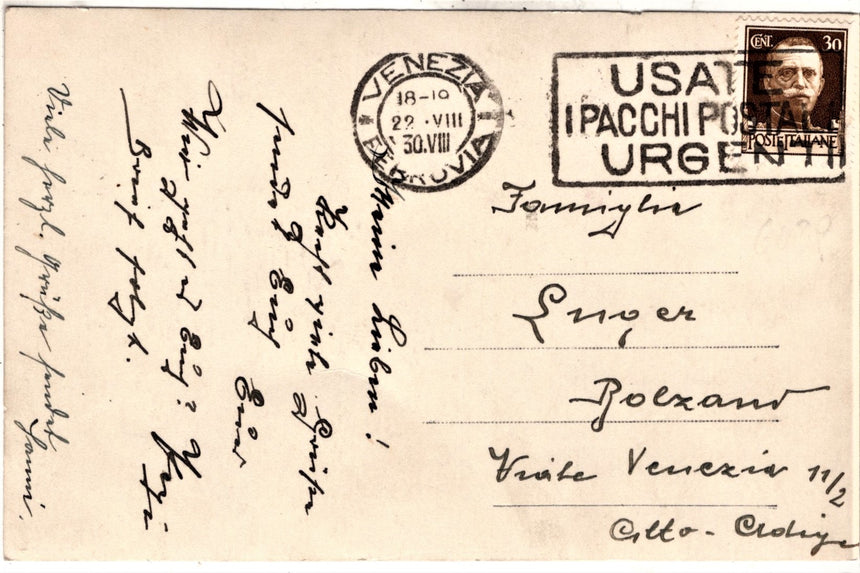 VENEZIA
18-19
22 · VIII
30.VIII
FERROVIA
USATE
I PACCHI POSTALI
URGENTI
CENT. 30
POSTE ITALIANE
Famiglia
Enger
Bolzano
Viale Venezia 11/2
Alto-Adige
Meine Lieben!
Recht viele Grüße
sendet Euch
Euer
Wie geht es Euch?
Brief folgt.
Viele herzl. Grüße sendet
Hanni.